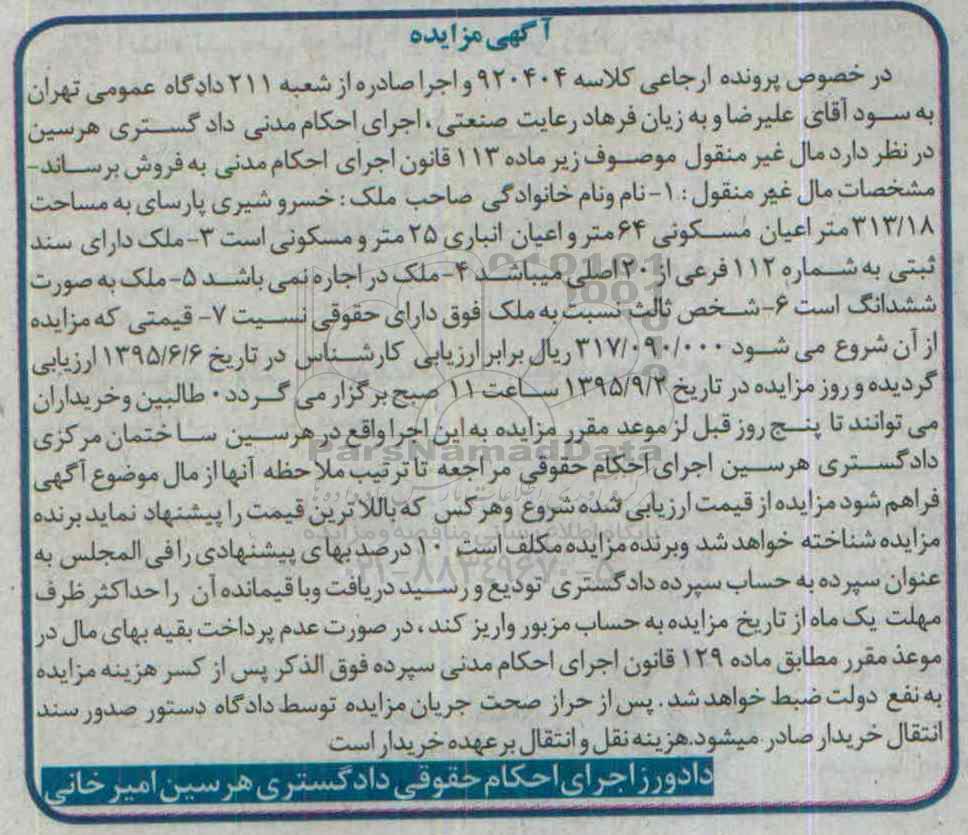 آگهی مزایده
در خصوص پرونده ارجاعی کلاسه ۹۲۰۴۰۴ و اجرا صادره از شعبه ۲۱۱ دادگاه عمومی تهران
به سود آقای علیرضا و به زیان فرهاد رعایت صنعتی، اجرای احکام مدنی دادگستری هرسین
در نظر دارد مال غیر منقول موصوف زیر ماده ۱۱۳ قانون اجرای احکام مدنی به فروش برساند-
مشخصات مال غیر منقول: ۱-نام ونام خانوادگی صاحب ملک: خسرو شیری پارسای به مساحت
۳۱۳/۱۸ متر اعیان مسکونی ۶۴ متر و اعیان انباری ۲۵ متر و مسکونی است ۳-ملک دارای سند
ثبتی به شماره ۱۱۲ فرعی از ۲۰ اصلی میباشد ۴-ملک در اجاره نمی باشد ۵-ملک به صورت
ششدانگ است ۶-شخص ثالث نسبت به ملک فوق دارای حقوقی نسیت ۷- قیمتی که مزایده
از آن شروع می شود ۳۱۷/۰۹۰/۰۰۰ ریال برابر ارزیابی کارشناس در تاریخ ۱۳۹۵/۶/۶ ارزیابی
گردیده و روز مزایده در تاریخ ۱۳۹۵/۹/۲ ساعت ۱۱ صبح برگزار می گردد. طالبین وخریداران
می توانند تا پنج روز قبل لز موعد مقرر مزایده به این اجرا واقع در هرسین ساختمان مرکزی
دادگستری هرسین اجرای احکام حقوقی مراجعه تا ترتیب ملاحظه آنها از مال موضوع آگهی
فراهم شود مزایده از قیمت ارزیابی شده شروع وهرکس که باللا ترین قیمت را پیشنهاد نماید برنده
مزایده شناخته خواهد شد وبرنده مزایده مکلف است ۱۰ درصد بهای پیشنهادی را فی المجلس به
عنوان سپرده به حساب سپرده دادگستری تودیع و رسید دریافت وباقیمانده آن را حداکثر ظرف
مهلت یک ماه از تاریخ مزایده به حساب مزبور واریز کند، در صورت عدم پرداخت بقیه بهای مال در
موعذ مقرر مطابق ماده ۱۲۹ قانون اجرای احکام مدنی سپرده فوق الذکر پس از کسر هزینه مزایده
به نفع دولت ضبط خواهد شد. پس از حراز صحت جریان مزایده توسط دادگاه دستور صدور سند
انتقال خریدار صادر میشود.هزینه نقل و انتقال بر عهده خریدار است
دادورز اجرای احکام حقوقی دادگستری هرسین امیر خانی
ParsNamadData
۰۲۱-۸۸۳۴۹۶۷۰-۵